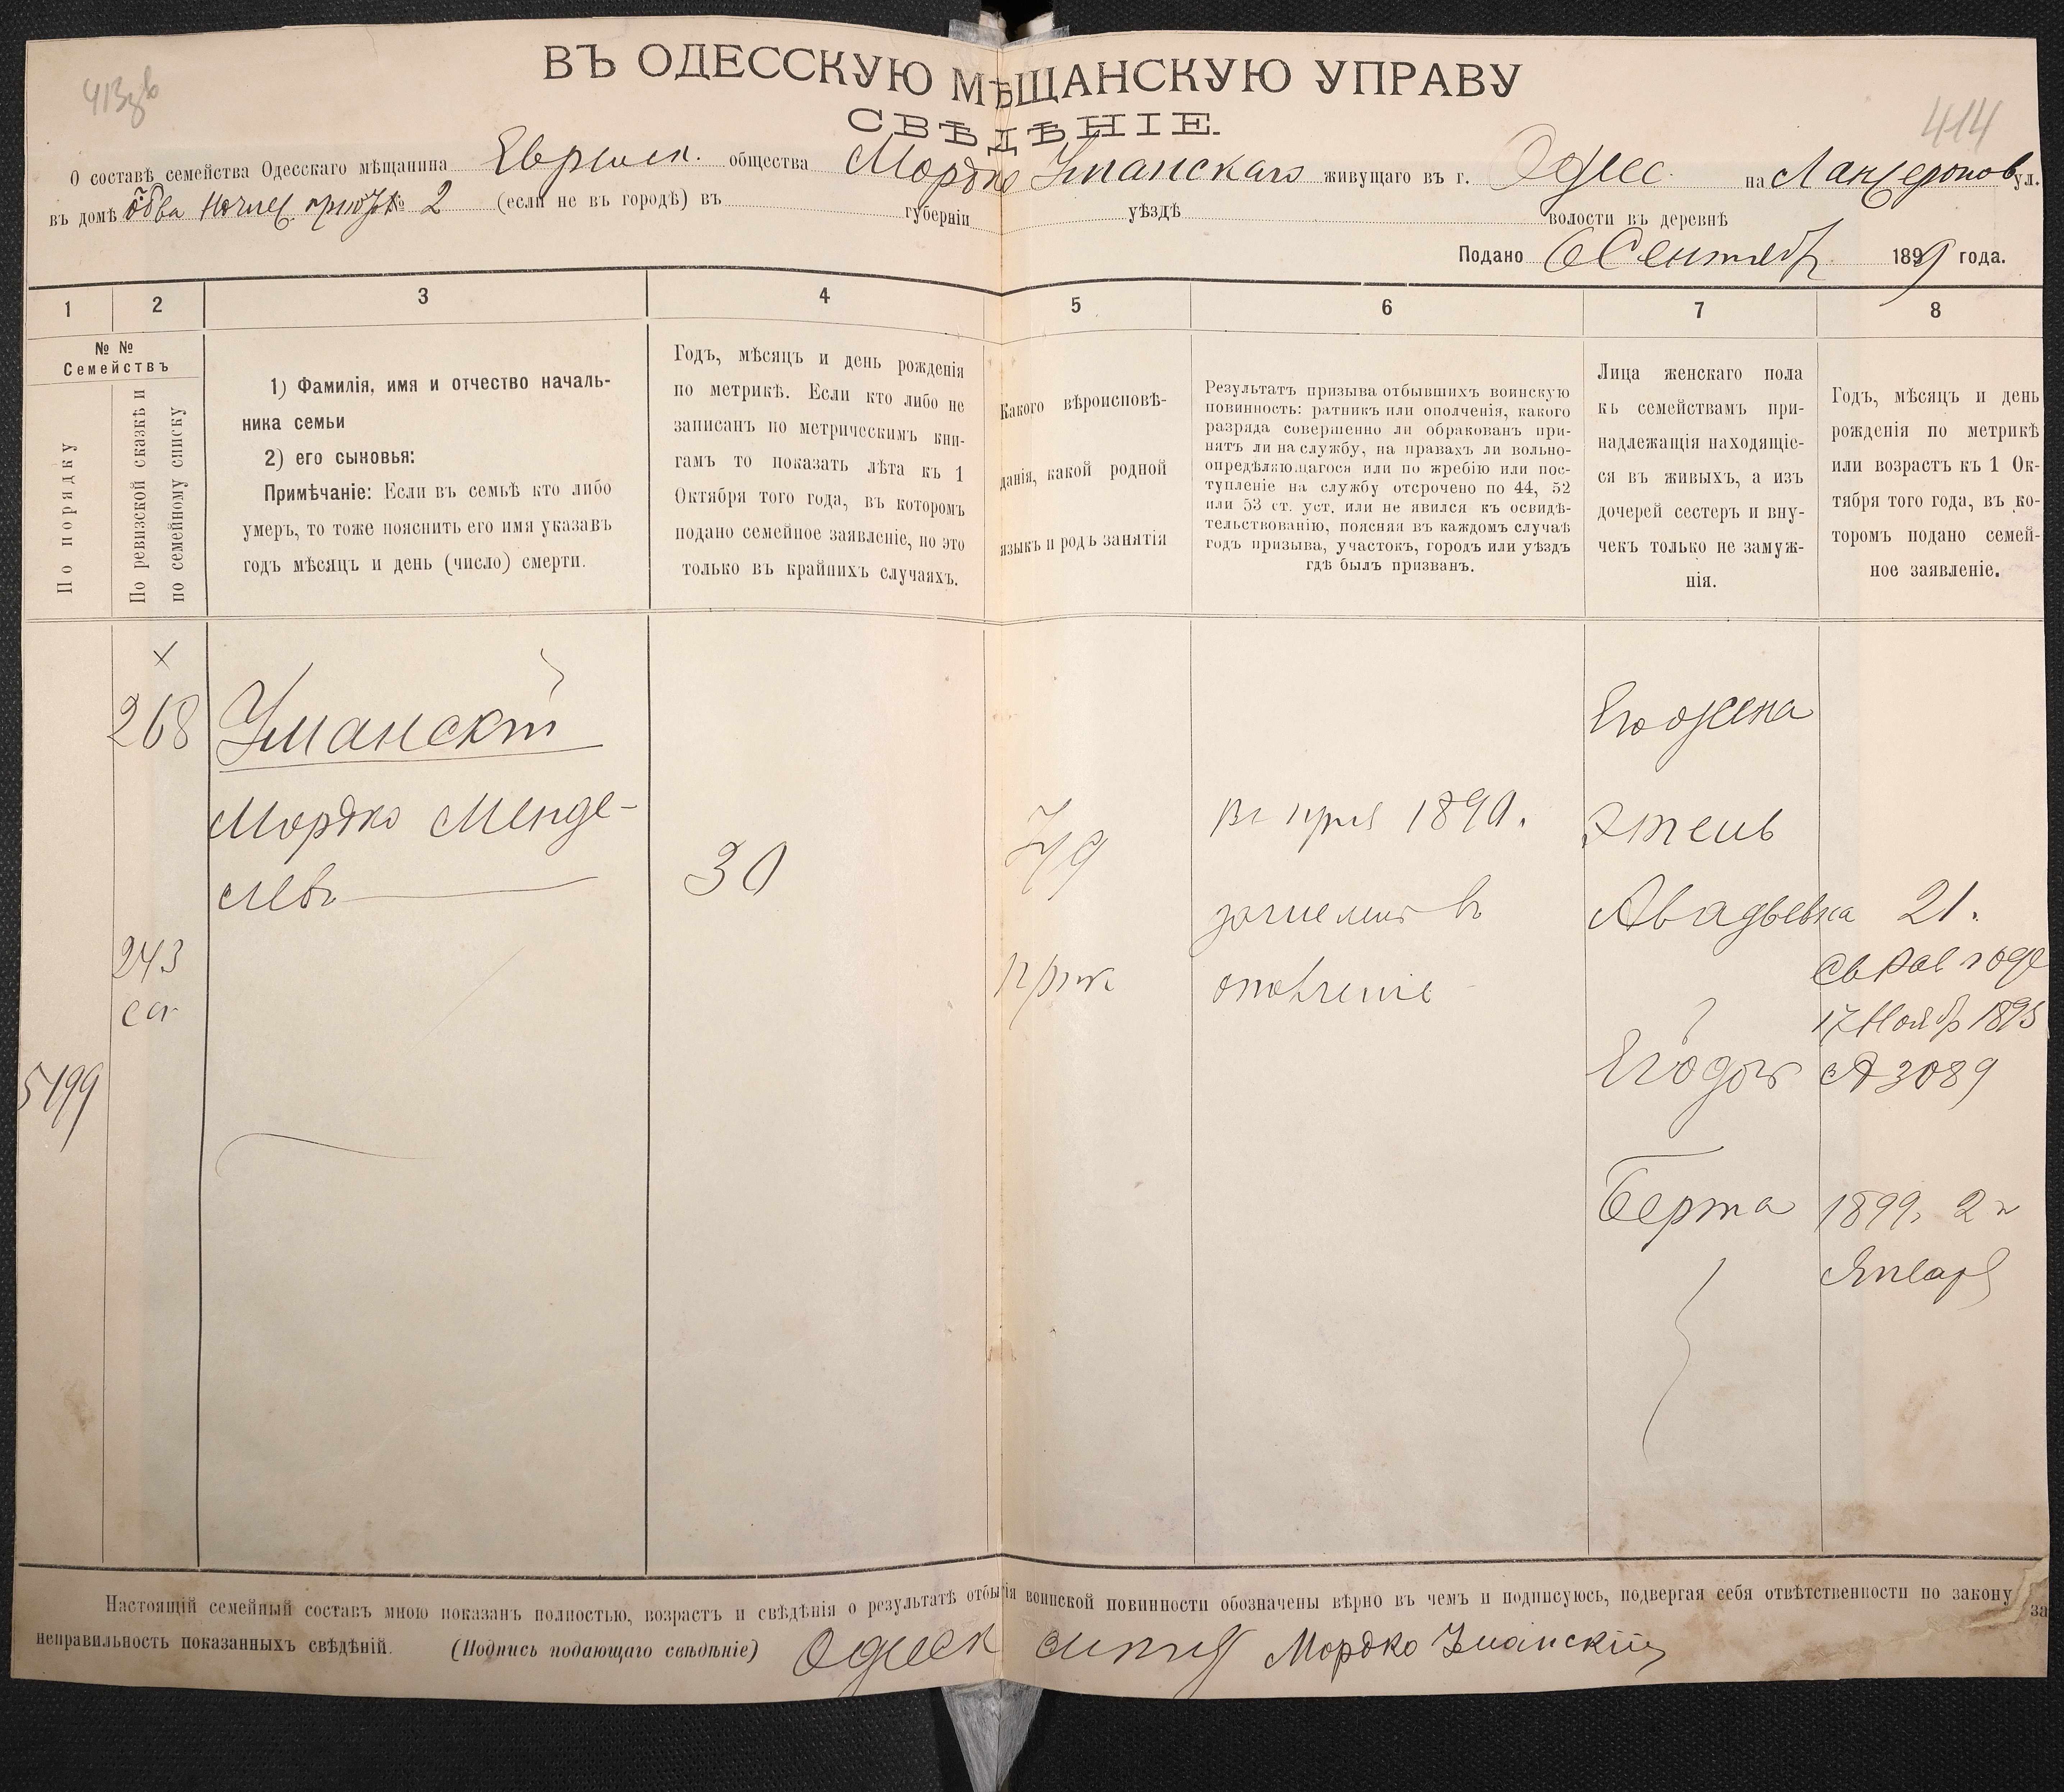 ВЪ ОДЕССКУЮ МѢЩАНСКУЮ УПРАВУ
СВѢДѢНІЕ.
414
О составѣ семейства Одесскаго мѣщанина Еврейск. общества Мордко Уманскаго живущаго въ г. Одес. на Ланжеронов ул.
въ домѣ Общва Ночлеж приюж № 2 (если не въ городѣ) въ губерніи уѣздѣ волости въ деревнѣ
Подано 6 Сентябр 1899 года.
1 2 3 4 5 6 7 8
№ №
Семействъ
По порядку
По ревизской сказкѣ и
по семейному списку
1) Фамилія, имя и отчество началь-
ника семьи
2) его сыновья:
Примѣчаніе: Если въ семьѣ кто либо
умеръ, то тоже пояснить его имя указавъ
годъ мѣсяцъ и день (число) смерти.
Годъ, мѣсяцъ и день рожденія
по метрикѣ. Если кто либо не
записанъ по метрическимъ кни-
гамъ то показать лѣта къ 1
Октября того года, въ которомъ
подано семейное заявленіе, но это
только въ крайнихъ случаяхъ.
Какого вѣроисповѣ-
данія, какой родной
языкъ и родъ занятія
Результатъ призыва отбывшихъ воинскую
повинность: ратникъ или ополченія, какого
разряда совершенно ли обракованъ при-
нятъ ли на службу, на правахъ ли вольно-
опредѣляющагося или по жребію или пос-
тупленіе на службу отсрочено по 44, 52
или 53 ст. уст. или не явился къ освидѣ-
тельствованію, поясняя въ каждомъ случаѣ
годъ призыва, участокъ, городъ или уѣздъ
гдѣ былъ призванъ.
Лица женскаго пола
къ семействамъ при-
надлежащія находящіе-
ся въ живыхъ, а изъ
дочерей сестеръ и вну-
чекъ только не замуж-
нія.
Годъ, мѣсяцъ и день
рожденія по метрикѣ
или возрастъ къ 1 Ок-
тября того года, въ ко-
торомъ подано семей-
ное заявленіе.
268
Уманскій
Мордко Менде-
левъ
30
Іуд
243
5199
въ приз 1890.
зачисленъ въ
ополченіе
Его жена
Этель
Авадьевна 21.
17 Ноябр 1895
Его доч № 3089
Берта 1899, 2 г
Январ
Настоящій семейный составъ мною показанъ полностью, возрастъ и свѣдѣнія о результатѣ отбытія воинской повинности обозначены вѣрно въ чемъ и подписуюсь, подвергая себя отвѣтственности по закону за
неправильность показанныхъ свѣдѣній. (Подпись подающаго свѣдѣніе) Одесск Мордко Уманскій